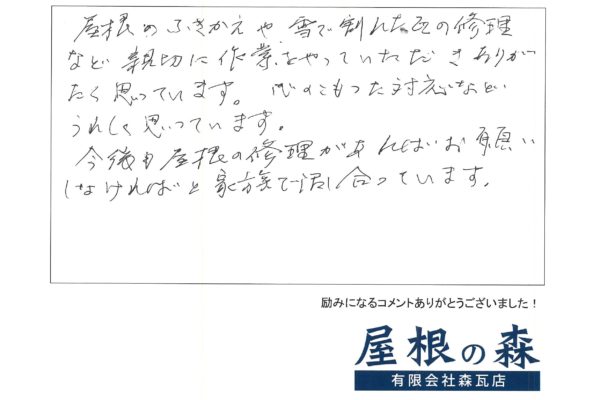 屋根のふきかえや、雪で割れた瓦の修理
など親切に作業をやっていただきありが
たく思っています。心のこもった対応など
うれしく思っています。
今後も屋根の修理があればお願い
しなければと家族で話し合っています。
励みになるコメントありがとうございました！
屋根の森
有限会社森瓦店